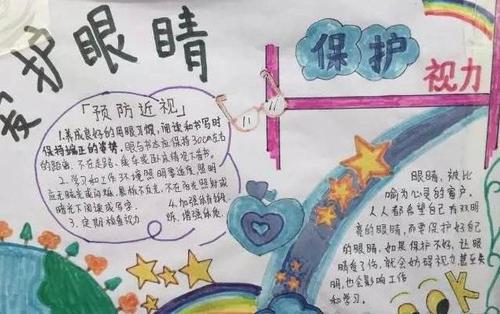 爱护眼睛
保护
视力
「预防近视」
1.养成良好的用眼习惯,阅读和书写时
保持端正的姿势,眼与书本应保持30cm左右
的距离,不在走路、乘车或卧床情况下看书。
2.学习和工作环境照明要适度,照明
应无眩光或闪烁,黑板不反光,不在阳光照射或
暗光下阅读或写字。
3.定期检查视力
4.加强体育锻
炼,增强体质
眼睛,被比
喻为心灵的窗户。
人人都希望自己有双明
亮的眼睛,而要保护好自己
的眼睛,如果保护不好,让眼
睛受了伤,就会妨碍视力甚至失
明,也会影响工作
和学习。